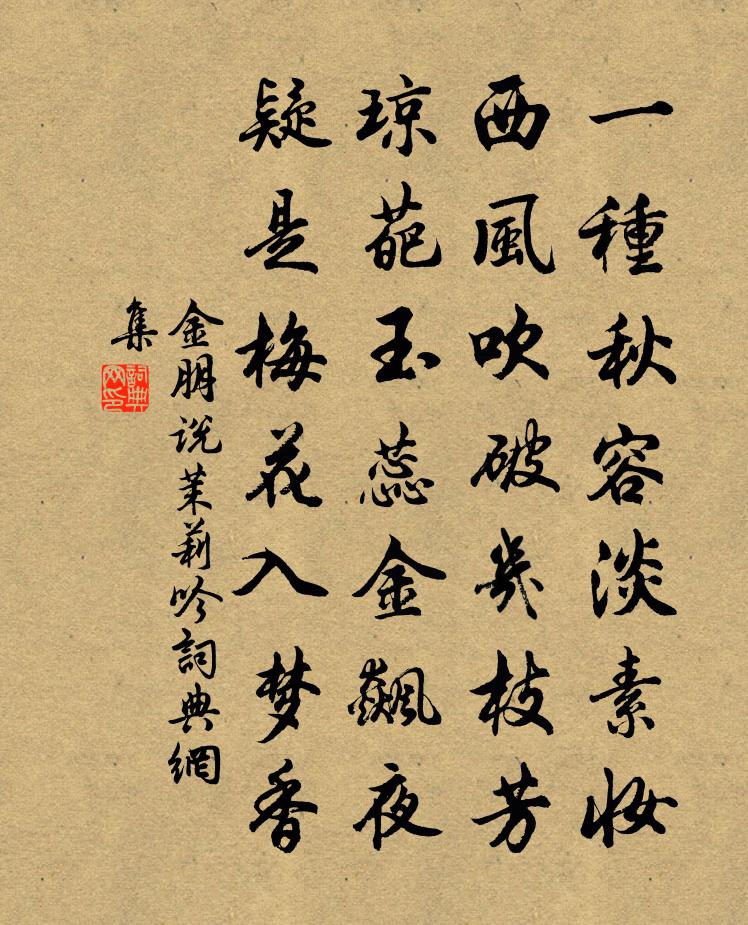 一種秋容淡素妝
西風吹破幾枝芳
琼葩玉蕊金飆夜
疑是梅花入梦香
金朋説茉莉吟詞典網
集
詞典
网印